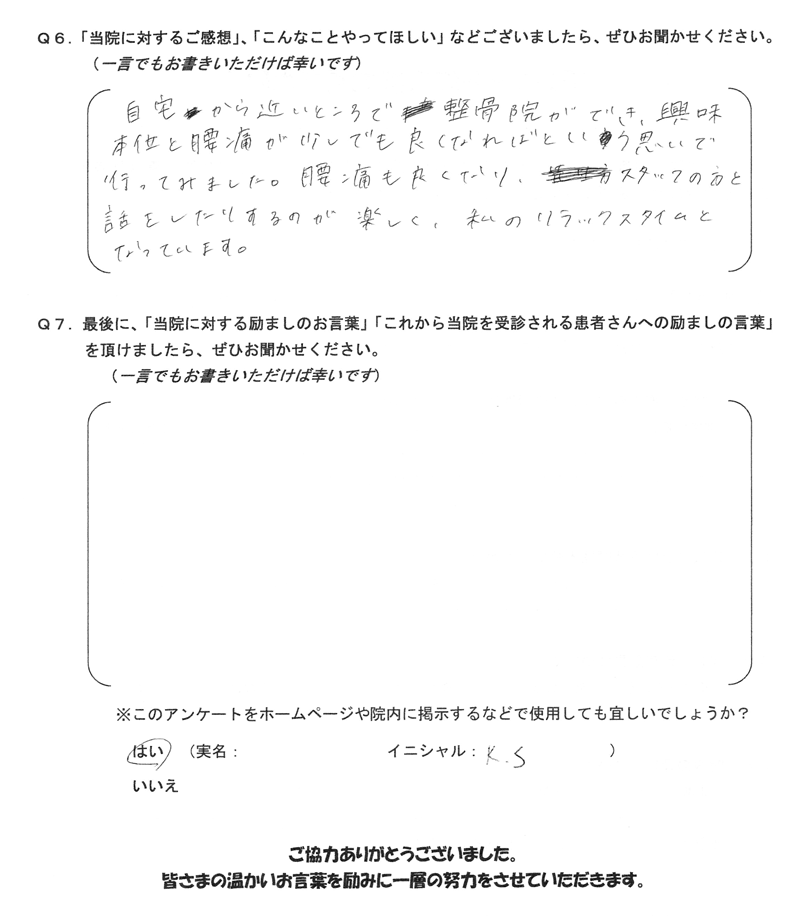 Ｑ６．「当院に対するご感想」、「こんなことやってほしい」などございましたら、ぜひお聞かせください。
（一言でもお書きいただけば幸いです）
自宅から近いところで整骨院ができ、興味
本位と腰痛が少しでも良くなればという思いで
行ってみました。腰痛も良くなり、スタッフの方と
話をしたりするのが楽しく、私のリラックスタイムと
なっています。
Ｑ７．最後に、「当院に対する励ましのお言葉」「これから当院を受診される患者さんへの励ましの言葉」
を頂けましたら、ぜひお聞かせください。
（一言でもお書きいただけば幸いです）
※このアンケートをホームページや院内に掲示するなどで使用しても宜しいでしょうか？
はい （実名： イニシャル：K.S ）
いいえ
ご協力ありがとうございました。
皆さまの温かいお言葉を励みに一層の努力をさせていただきます。